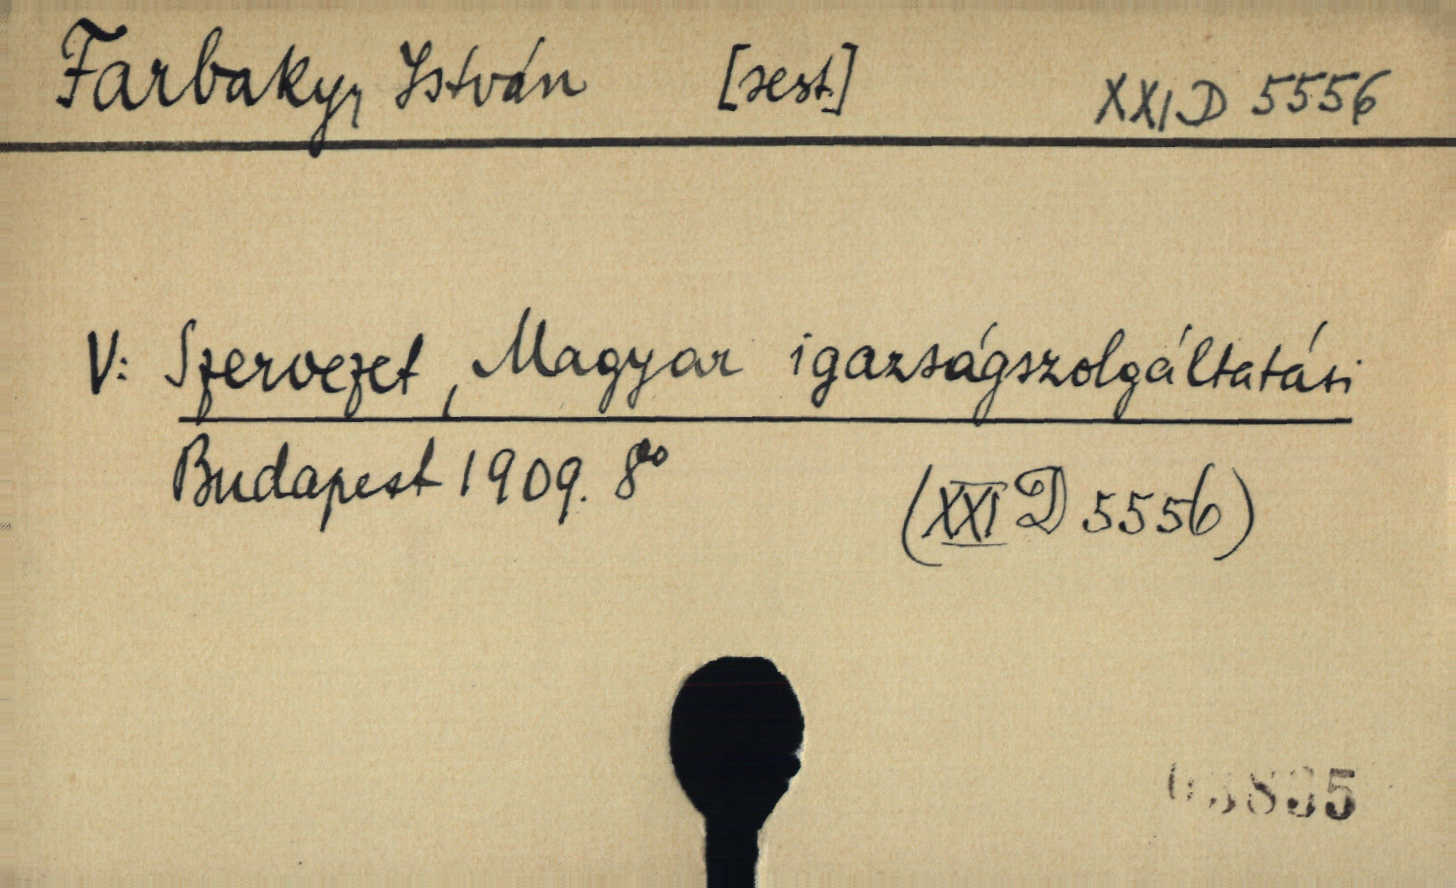 Farbaky, István [sest.] XXI D 5556
V: Szervezet, Magyar igazságszolgáltatási
Budapest 1909. 8°
(XXI D 5556)